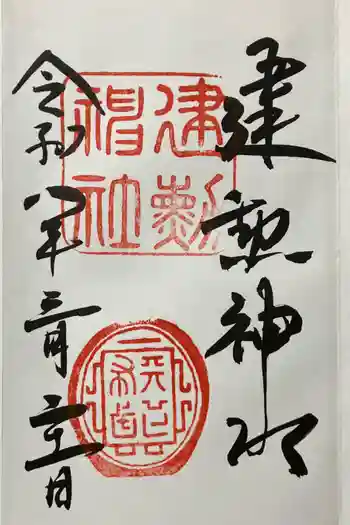 建勲神社
建勲
神社
令和八年三月二十一日